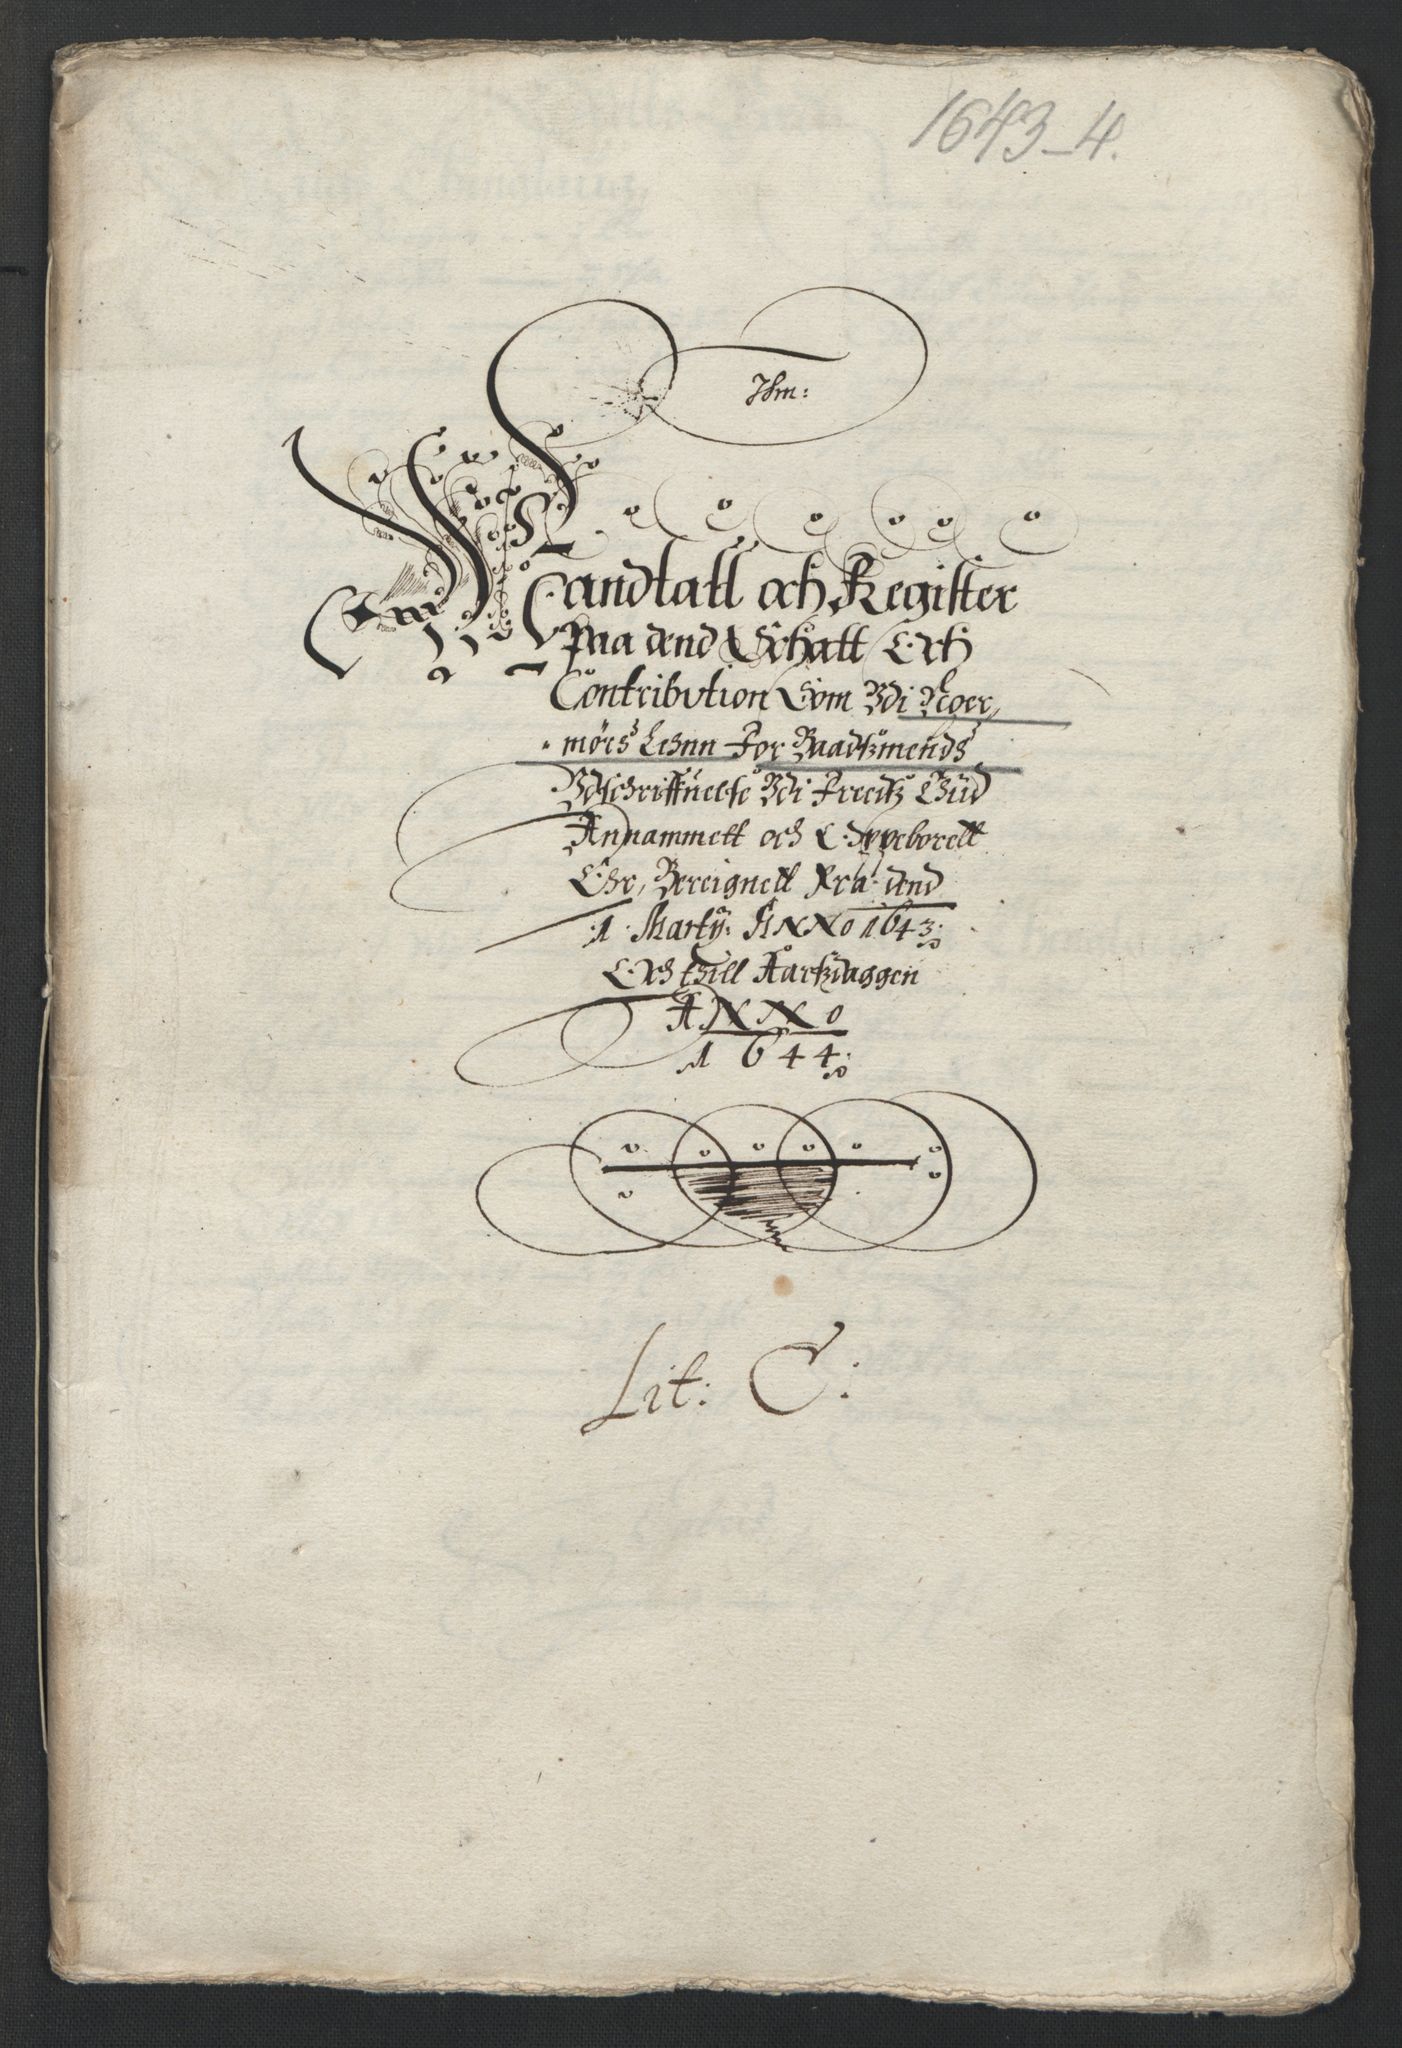 1643_4.
Ihm:
Mandtall och Register
Paa dend Schatt Och
Contribution Som Udi Noer,
möers Lehn For Baadtzmends
Udschriffuelse Udi Freedtz Thiid
Annammett och Oppeborett
Ehr, Bereignett Fra dend
1. Marty: ANNO 1643:
Och thill Aartzdaggen
ANNO
1644:
Lit: C: